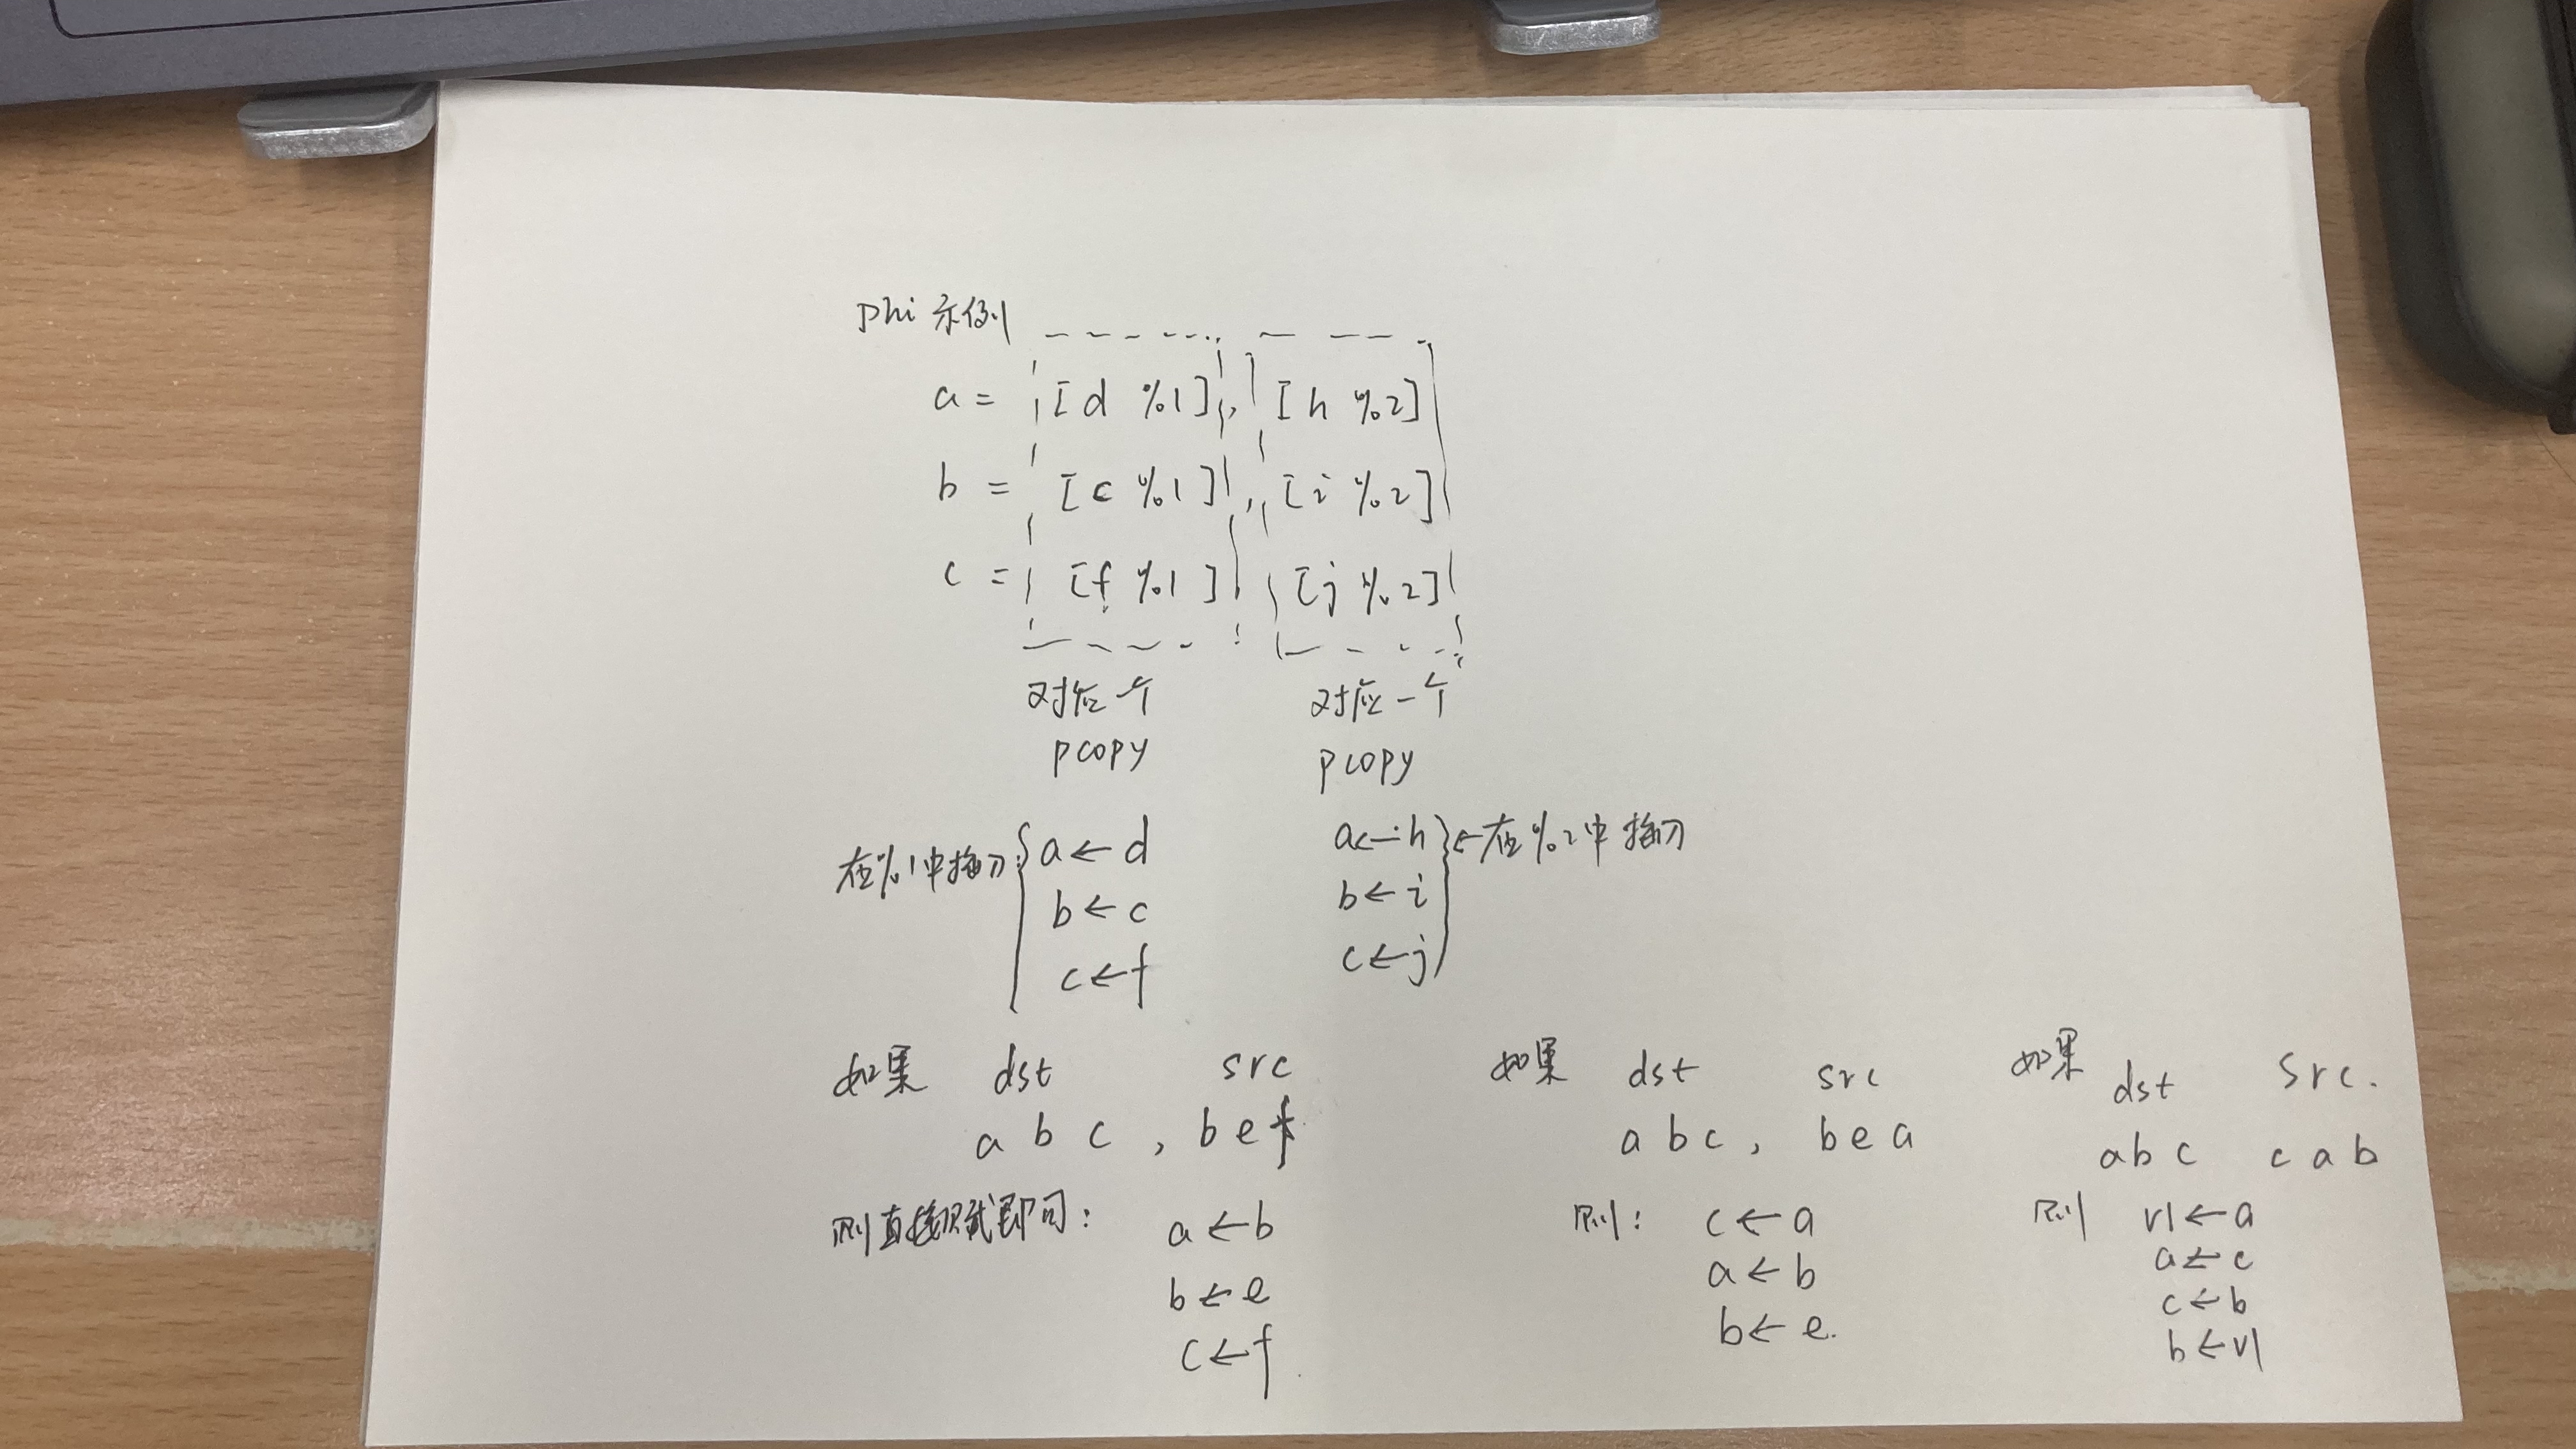 Phi 示例
a = [d %1], [h %2]
b = [c %1], [i %2]
c = [f %1] [j %2]
对应一个
pcopy
对应一个
pcopy
在%1中插入: a ← d
b ← c
c ← f
a ← h ← 在%2中插入
b ← i
c ← j
如果 dst src
a b c , b e f
则直接赋即可:
a ← b
b ← e
c ← f
如果 dst src
a b c , b e a
则: c ← a
a ← b
b ← e.
如果 dst src.
a b c c a b
则 v1 ← a
a ← c
c ← b
b ← v1